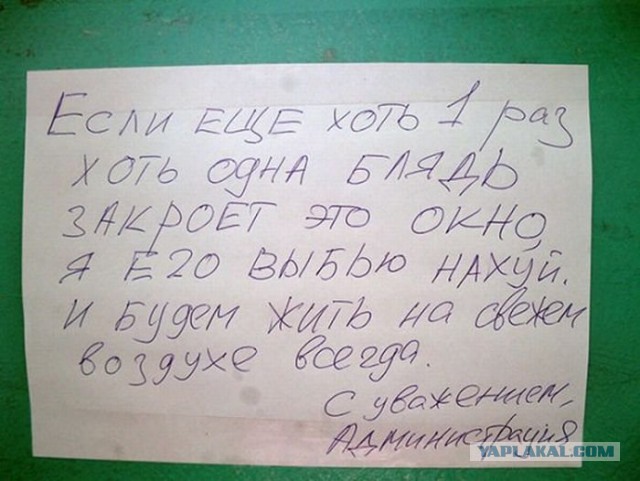 Если еще хоть 1 раз
хоть одна блядь
закроет это окно,
я его выбью нахуй.
и будем жить на свежем
воздухе всегда.
С уважением,
Администрация
YAPLAKAL.COM